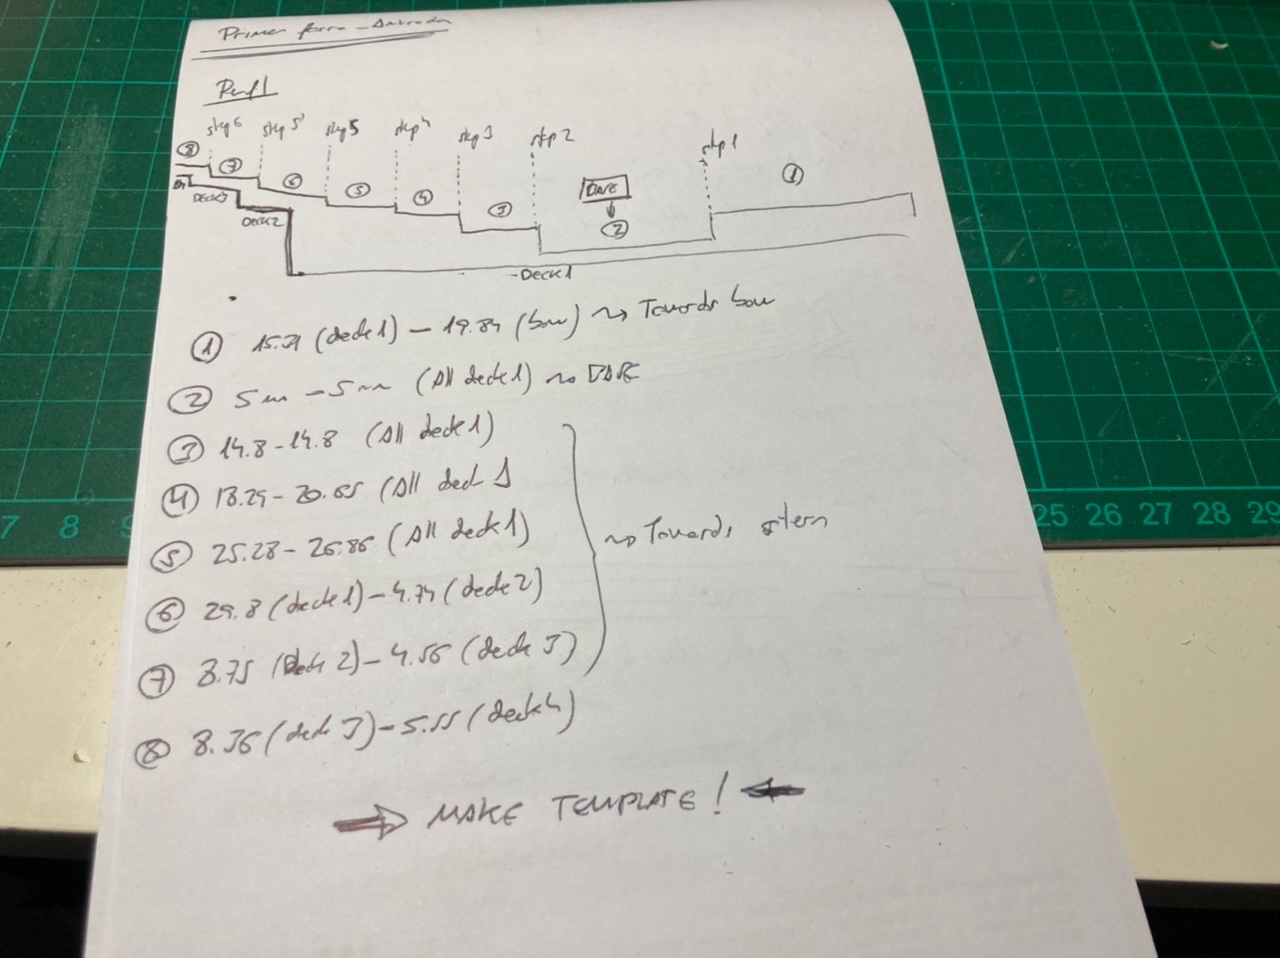 Primer forro - Andrade
Perfil
step 6 step 5' step 5 step 4 step 3 step 2 step 1
8 7 6 5 4 3 BASE 2 1
D4 DECK3 DECK2 - Deck 1
1 15.31 (deck 1) - 19.84 (bow) ~> Towards bow
2 5 mm - 5 mm (All deck 1) ~> BASE
3 14.8 - 14.8 (All deck 1)
4 18.29 - 20.65 (All deck 1
5 25.28 - 26.86 (All deck 1)
~> Towards stern
6 29.8 (deck 1) - 4.74 (deck 2)
7 8.75 (Deck 2) - 4.56 (deck 3)
8 8.36 (deck 3) - 5.55 (deck 4)
⇒ MAKE TEMPLATE! ⇐
7 8 9 25 26 27 28 29